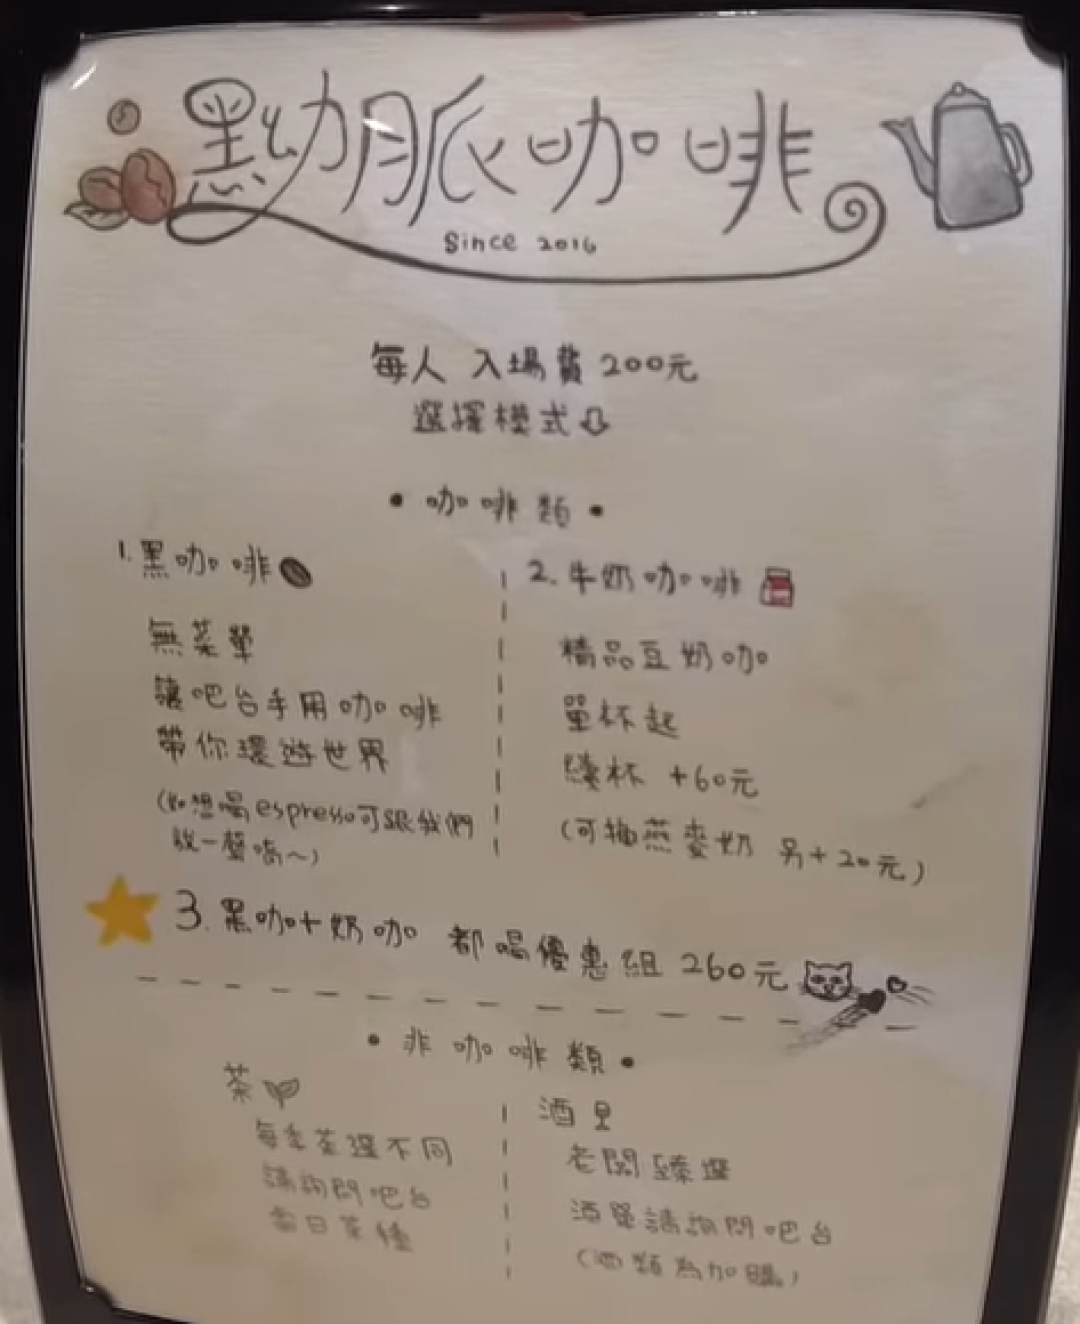 黝脈咖啡
Since 2016
每人 入場費 200元
選擇模式⇩
• 咖啡類 •
1. 黑咖啡
無菜單
讓吧台手用咖啡
帶你環遊世界
(如想喝espresso可跟我們
說一聲唷~)
2. 牛奶咖啡
精品豆奶咖
單杯起
續杯 +60元
(可換燕麥奶 另+20元)
3. 黑咖+奶咖 都喝優惠組 260元
• 非咖啡類 •
茶
每季茶選不同
請詢問吧台
當日茶種
酒
老闆臻選
酒單請詢問吧台
(酒類為加購)